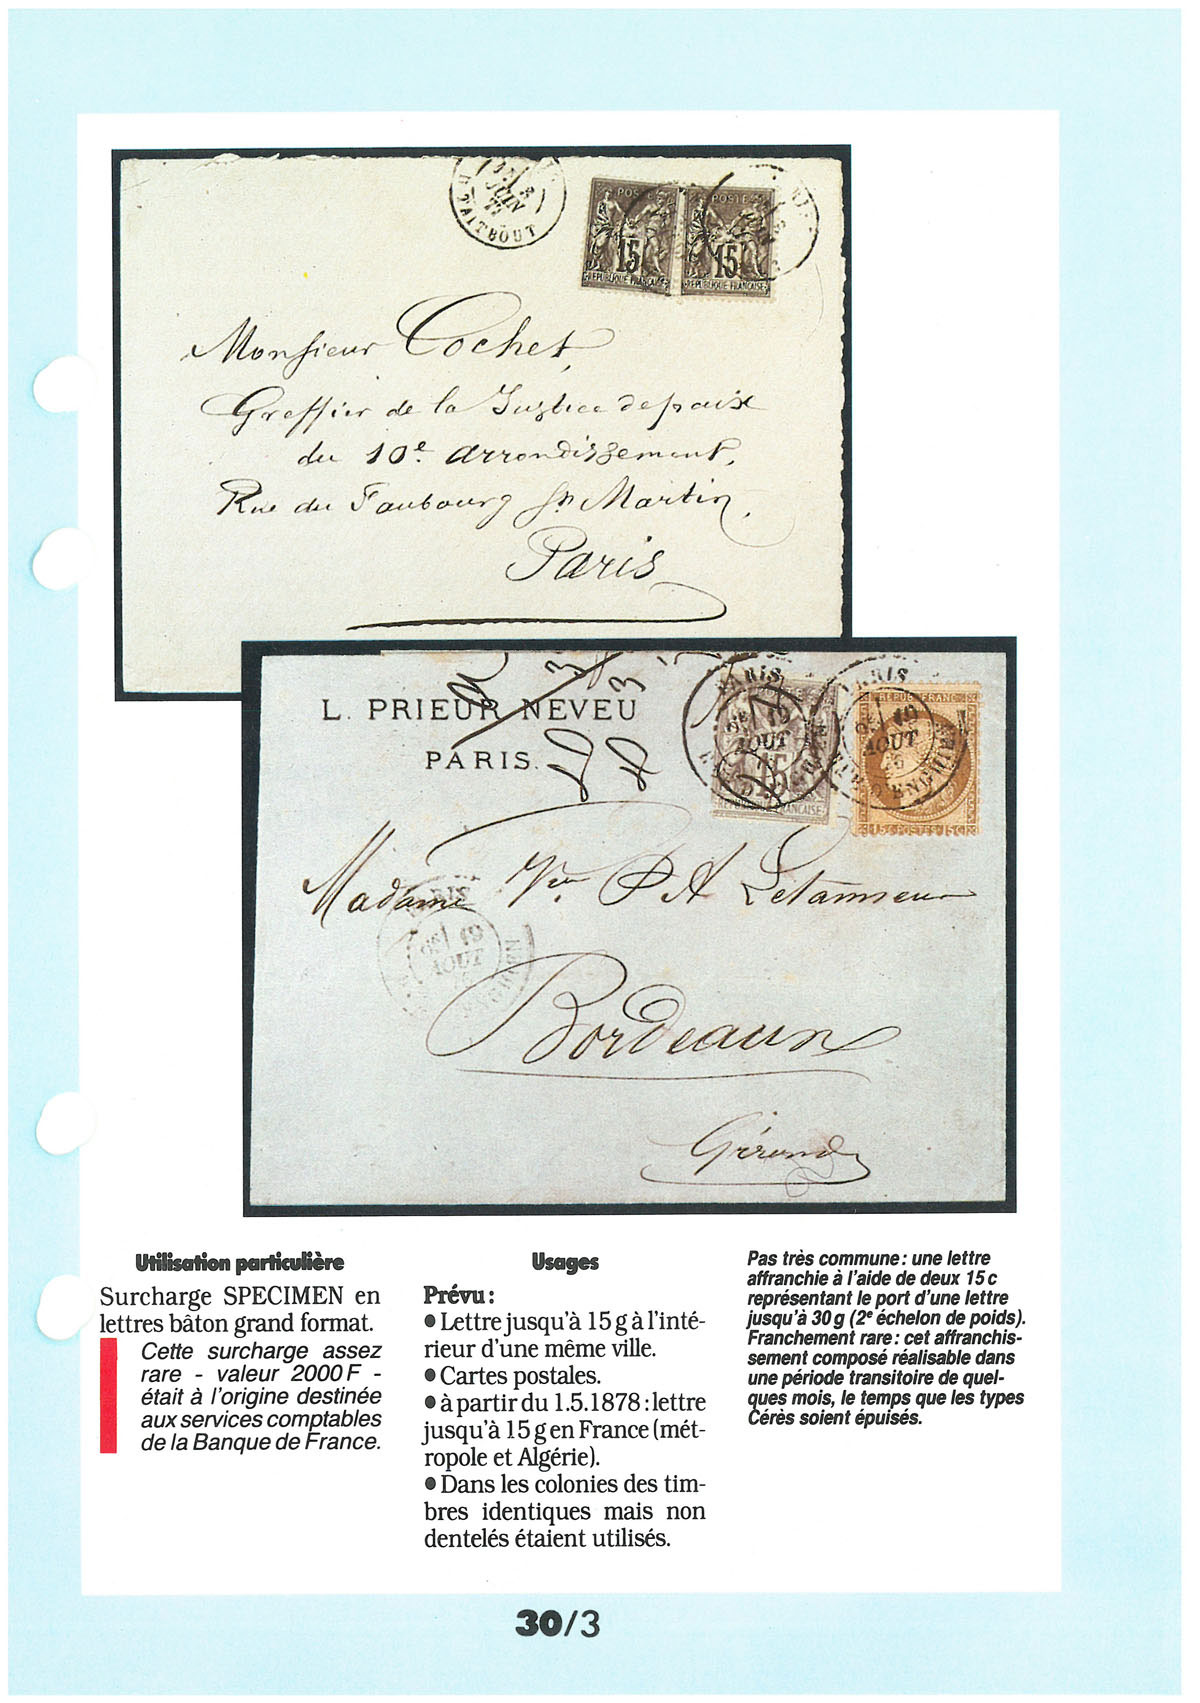 R. TAITBOUT
JUIN
77
POSTE
POSTE
15
15
REPUBLIQUE FRANCAISE
REPUBLIQUE FRANCAISE
Monsieur Cochet,
Greffier de la Justice de paix
du 10e. arrondissement,
Rue du Faubourg St. Martin,
Paris
L. PRIEUR NEVEU
PARIS.
PARIS
19
AOUT
15
REPUBLIQUE FRANCAISE
REPUB. FRANC.
PARIS
19
AOUT
76
R. D'ENGHIEN
15 C. POSTES 15 C.
Madame Vve. P A Letanneur
PARIS
19
AOUT
ENGHIEN
Bordeaux
Gironde
Utilisation particulière
Surcharge SPECIMEN en
lettres bâton grand format.
Cette surcharge assez
rare - valeur 2000 F -
était à l'origine destinée
aux services comptables
de la Banque de France.
Usages
Prévu :
● Lettre jusqu'à 15 g à l'inté-
rieur d'une même ville.
● Cartes postales.
● à partir du 1.5.1878 : lettre
jusqu'à 15 g en France (mét-
ropole et Algérie).
● Dans les colonies des tim-
bres identiques mais non
dentelés étaient utilisés.
Pas très commune : une lettre
affranchie à l'aide de deux 15 c
représentant le port d'une lettre
jusqu'à 30 g (2e échelon de poids).
Franchement rare : cet affranchis-
sement composé réalisable dans
une période transitoire de quel-
ques mois, le temps que les types
Cérès soient épuisés.
30/3